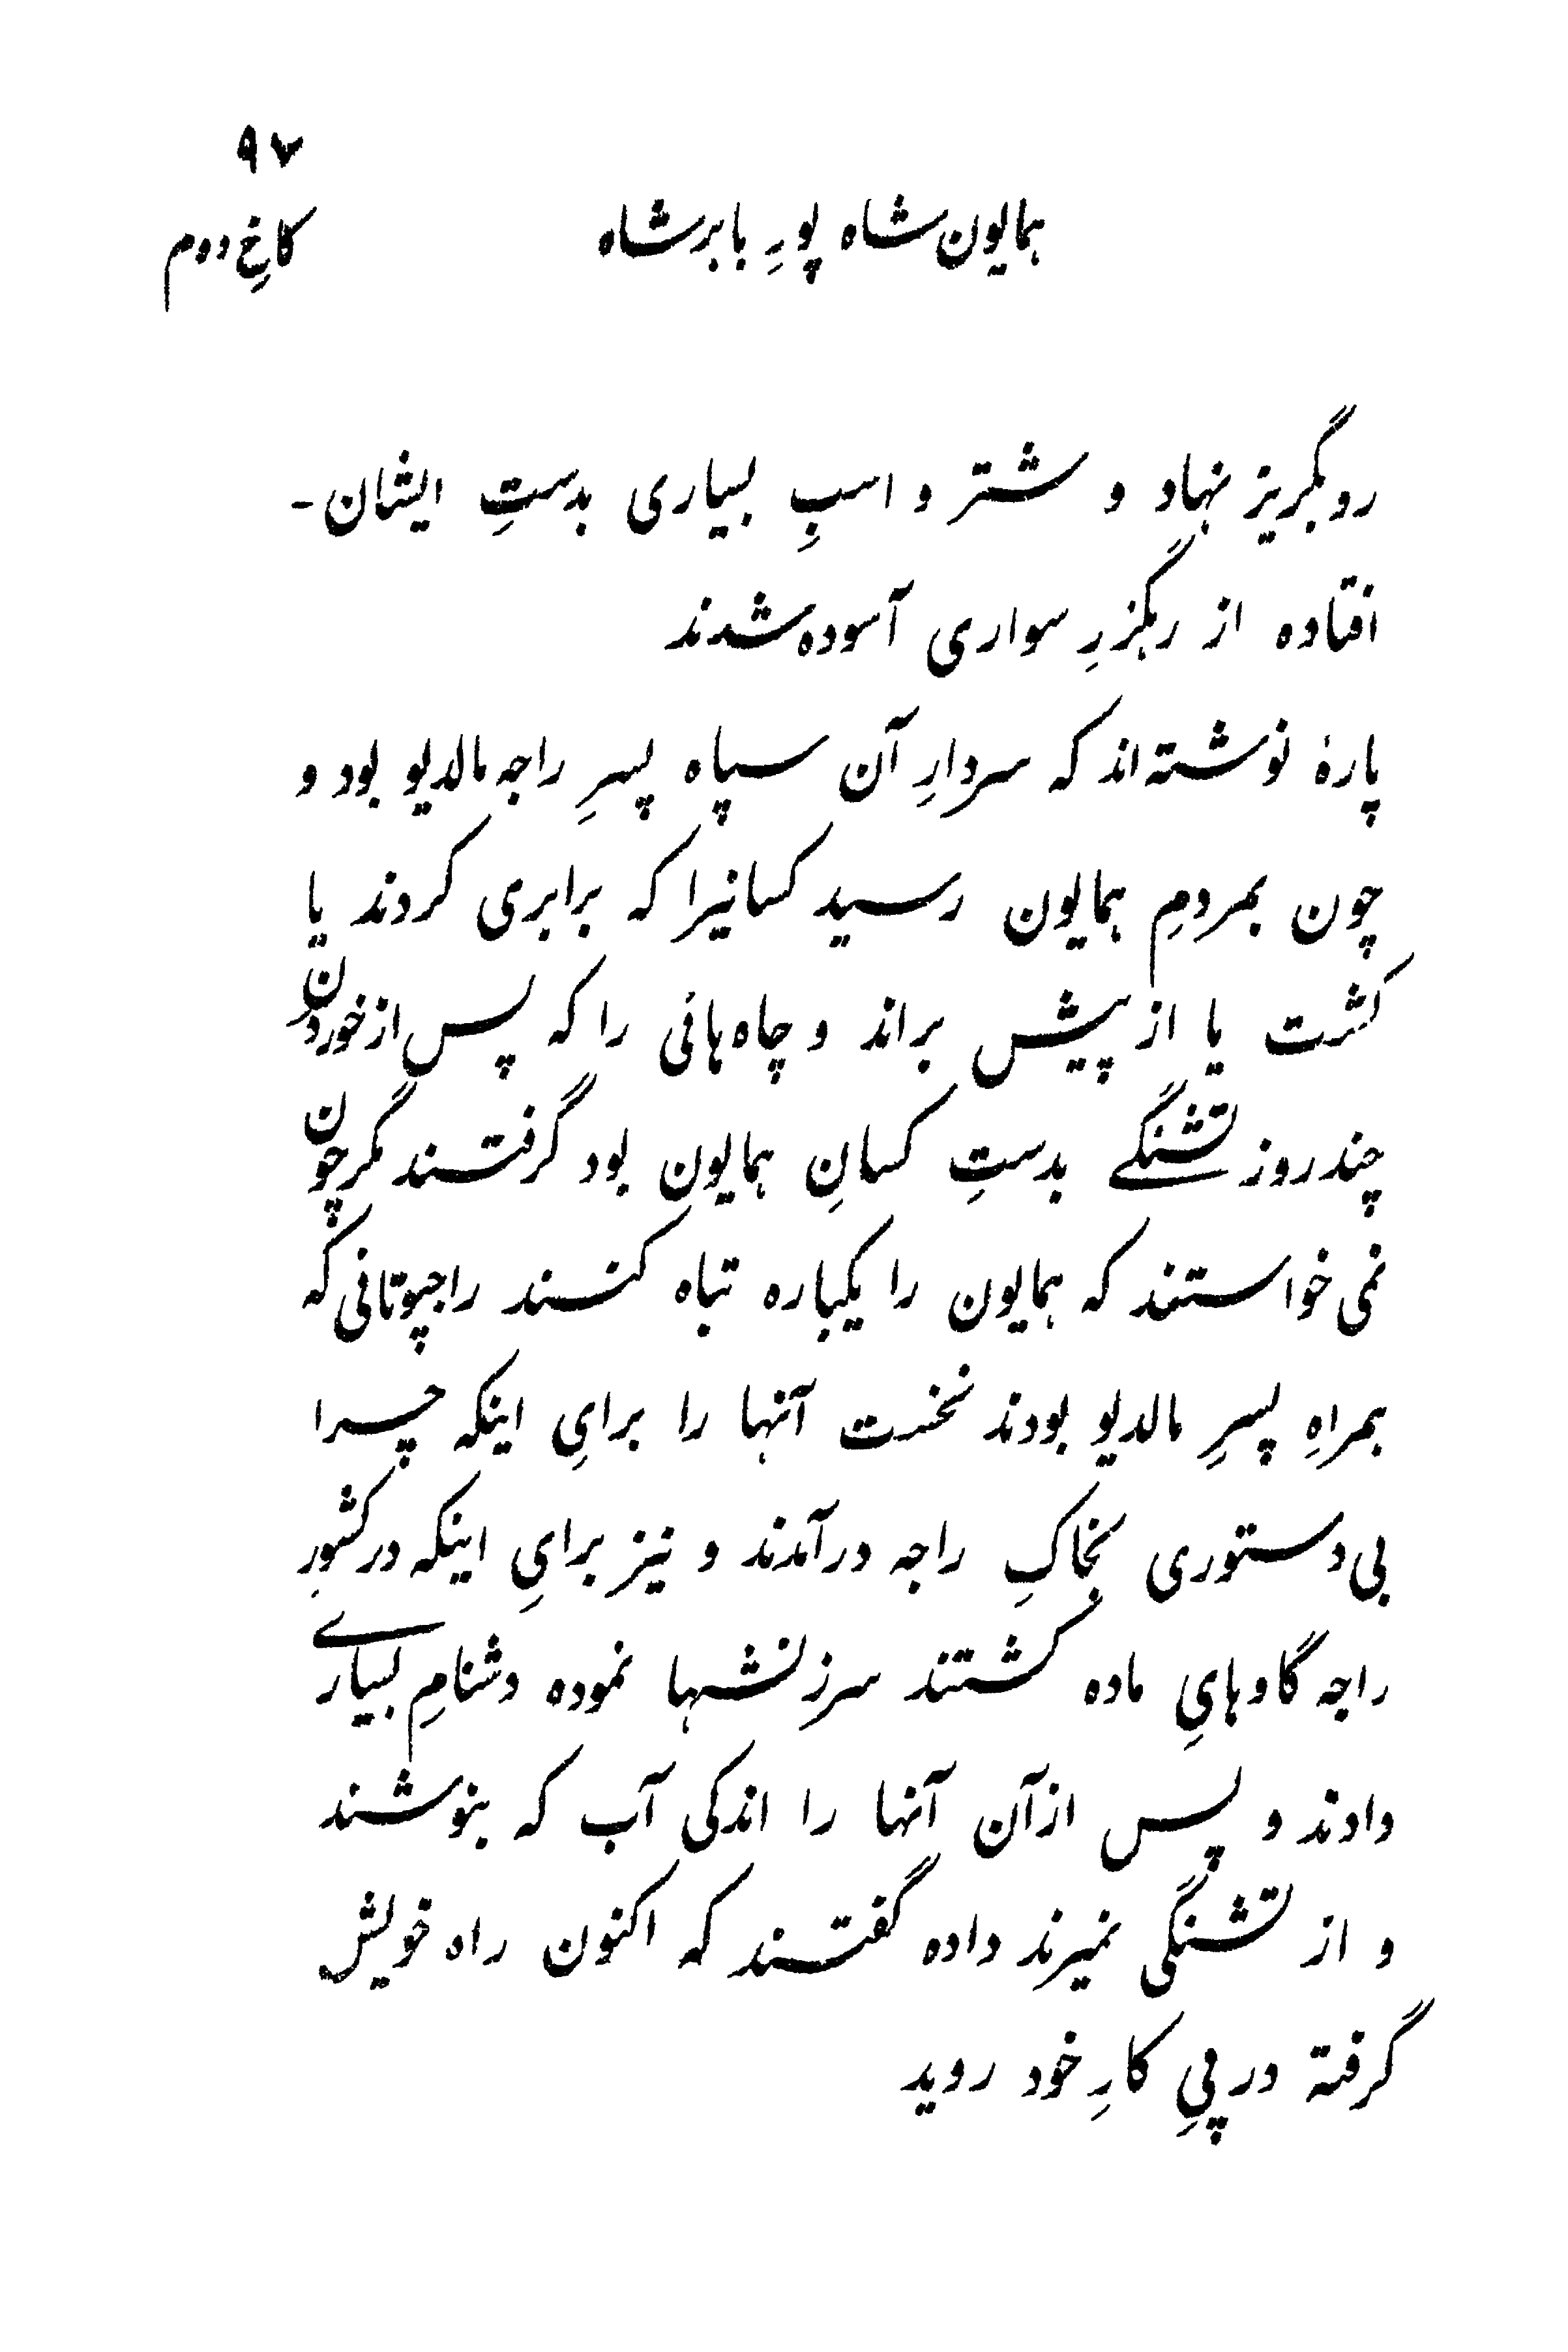 ۹۷
همایون شاه پورِ بابر شاه
کاخِ دوم
رو بگریز نهاد و شتر و اسبِ بسیاری بدستِ ایشان -
افتاده از رهگزرِ سواری آسوده شدند
پارۀ نوشته‌اند که سردارِ آن سپاه پسرِ راجه مالدیو بود و
چون بمردمِ همایون رسید کسانیرا که برابری کردند یا
کشت یا از پیش براند و چاه‌هائی را که پس از خوردنِ
چند روز تشنگے بدستِ کسانِ همایون بود گرفتند مگر چون
نمی‌خواستند که همایون را یکباره تباه کنند راجپوتانی که
همراهِ پسرِ مالدیو بودند نخست آنها را برایِ اینکه چرا
بی‌دستوری بخاکِ راجه درآمدند و نیز برایِ اینکه در کشورِ
راجه گاوهایِ ماده کشتند سرزنشها نموده دشنامِ بسیارے
دادند و پس ازآن آنها را اندکی آب که بنوشند
و از تشنگی نمیرند داده گفتند که اکنون راه خویش
گرفته در پیِ کارِ خود روید